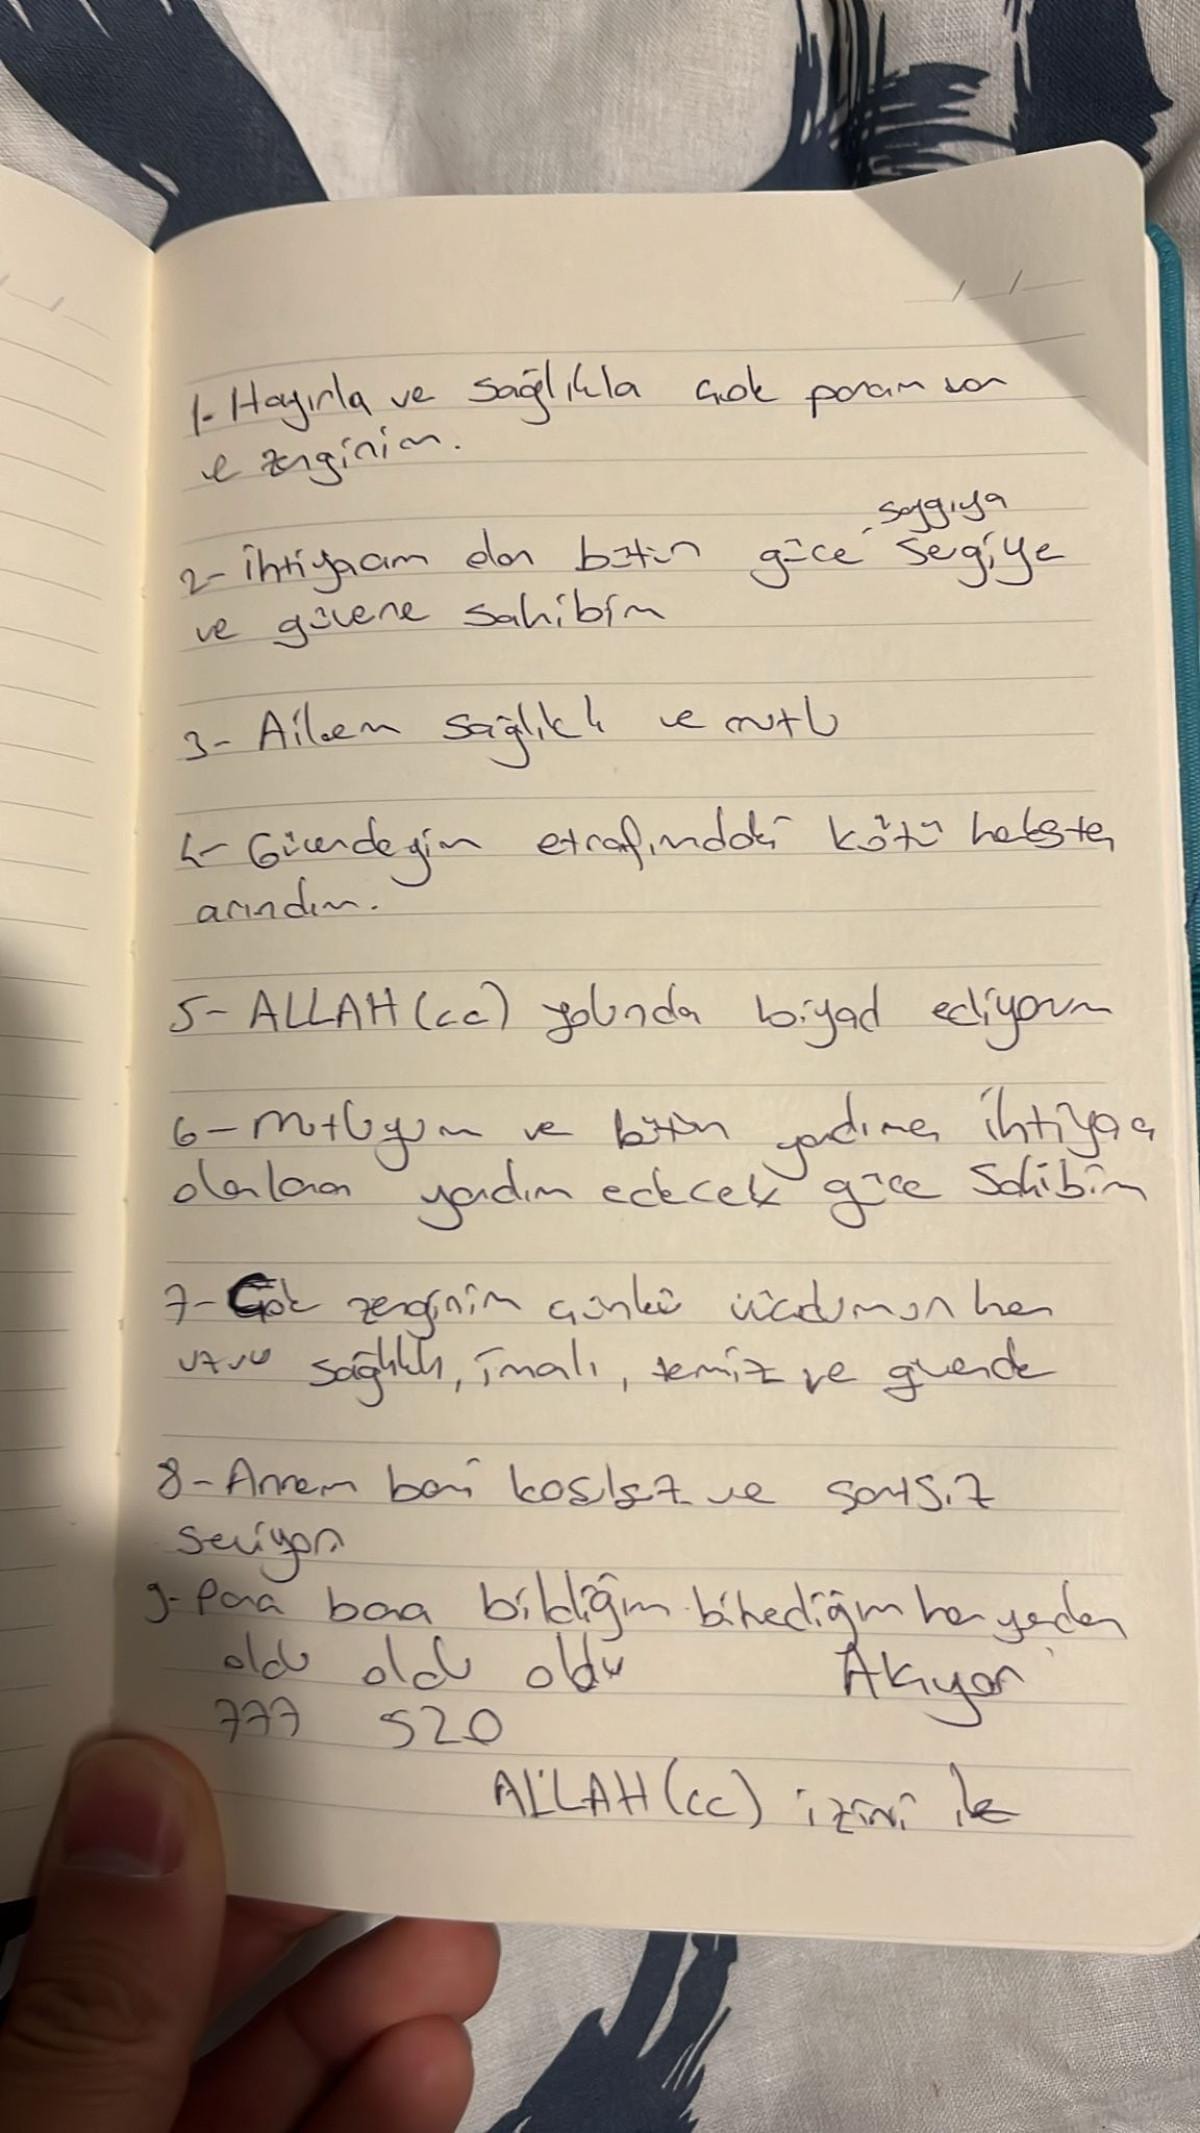 1- Hayırla ve sağlıkla çok param var
ve zenginim.
saygıya
2- ihtiyacım olan bütün güce segiye
ve güvene sahibim
3- Ailem sağlıklı ve mutlu
4- Güvendeyim etrafımdaki kötü herkesten
arındım.
5- ALLAH (cc) yolunda biyad ediyorum
6- mutluyum ve bütün yardıma ihtiyacı
olanlara yardım edecek güce sahibim
7- Çok zenginim çünkü vücudumun her
uzvu sağlıklı, temiz ve güvende
8- Annem beni koşulsuz ve şartsız
seviyor
9- Para bana bildiğim bilmediğim her yerden
oldu oldu oldu Akıyor
777 520
ALLAH (cc) izini ile